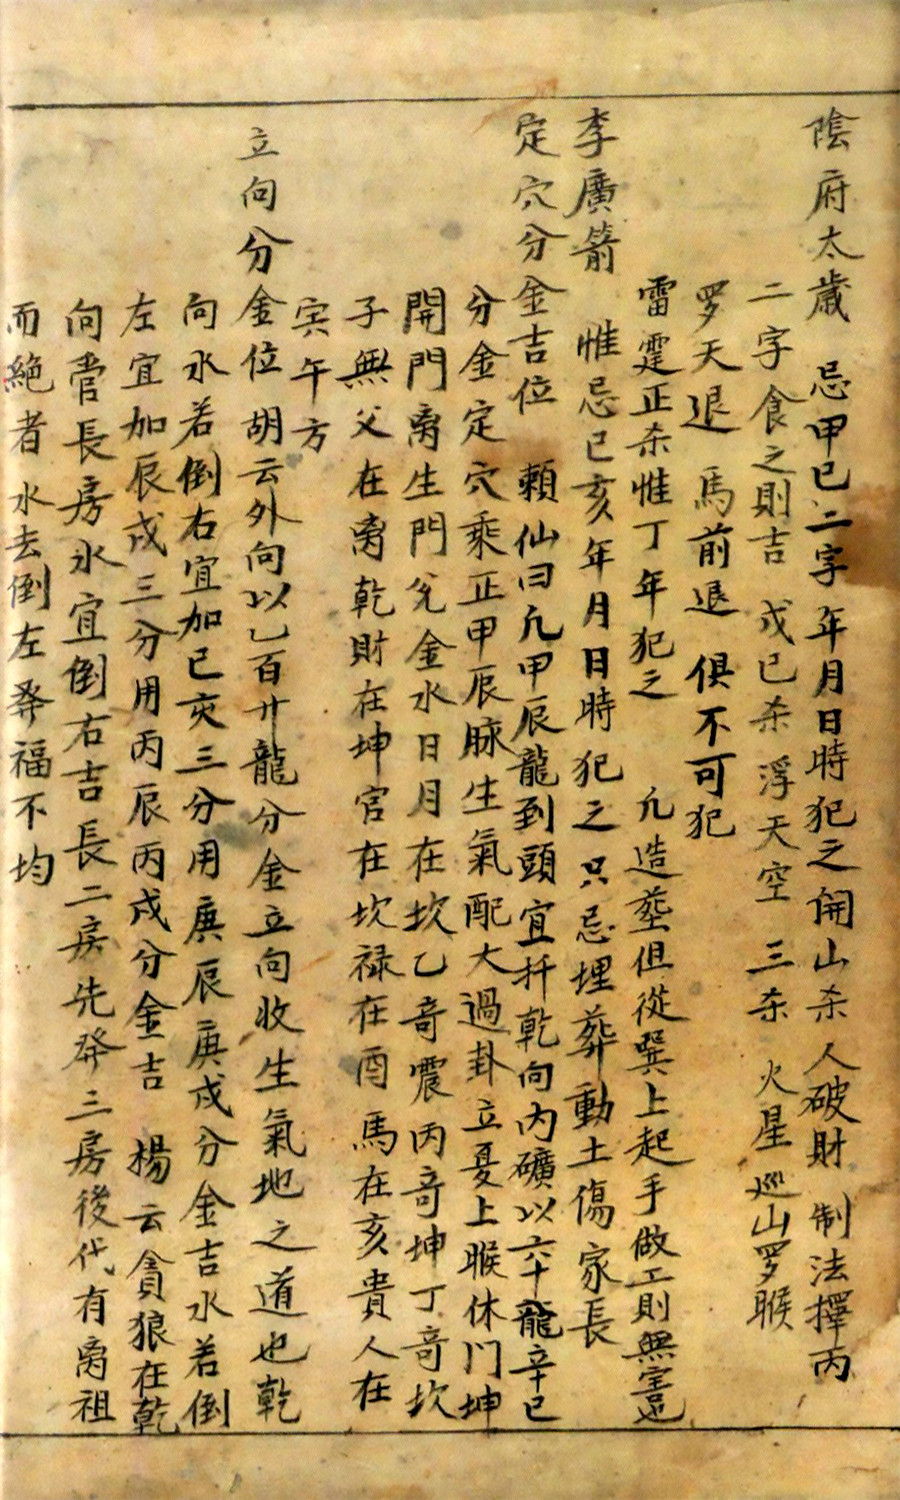 陰府太歲 忌甲巳二字年月日時犯之開山杀人破財 制法擇丙
二字食之則吉 戊巳杀 浮天空 三杀 火星 巡山罗睺
罗天退 馬前退 俱不可犯
雷霆正杀惟丁年犯之 凢造塟但從巽上起手做工則無害也
李廣箭 惟忌巳亥年月日時犯之只忌埋葬動土傷家長
定穴分金吉位 頼仙曰凢甲辰龍到頭宜扦乾向内礦以六十龍辛巳
分金定穴乘正甲辰脉生氣配大過卦立夏上睺休门坤
開門离生門兌金水日月在坎乙奇震丙奇坤丁奇坎
子無父在离乾財在坤官在坎禄在酉馬在亥貴人在
寅午方
立向分金位胡云外向以乙百廾龍分金立向收生氣地之道也乾
向水若倒右宜加巳亥三分用庚辰庚戌分金吉水若倒
左宜加辰戌三分用丙辰丙戌分金吉 楊云貪狼在乾
向管長房水宜倒右吉長二房先發三房後代有离祖
而絶者水去倒左發福不均